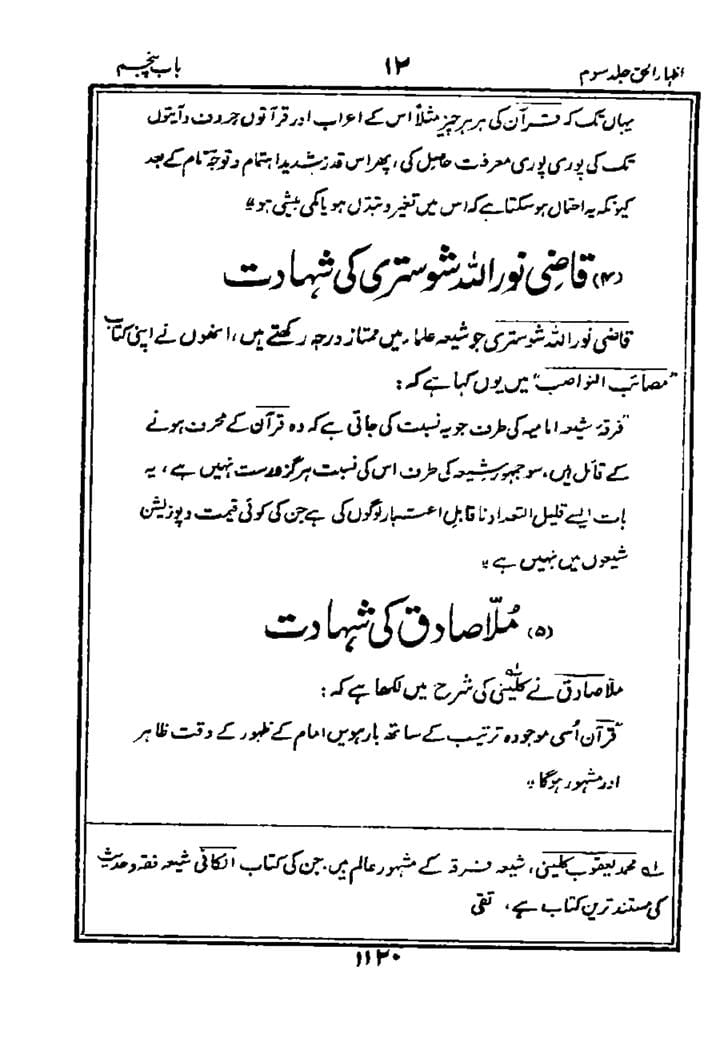 اظہار الحق جلد سوم ۱۲ باب پنجم
یہاں تک کہ قرآن کی ہر ہر چیز مثلاً اس کے اعراب اور قرآتوں حروف و آیتوں
تک کی پوری پوری معرفت حاصل کی، پھر اس قدر شدید اہتمام و توجہ تام کے بعد
کیونکر یہ احتمال ہو سکتا ہے کہ اس میں تغیر و تبدل ہو یا کمی بیشی ہو"
(۴) قاضی نور اللہ شوستری کی شہادت
قاضی نور اللہ شوستری جو شیعہ علماء میں ممتاز درجہ رکھتے ہیں، انھوں نے اپنی کتاب
"مصائب النواصب" میں یوں کہا ہے کہ:
"فرقۂ شیعہ امامیہ کی طرف جو یہ نسبت کی جاتی ہے کہ وہ قرآن کے محرف ہونے
کے قائل ہیں، سو جمہور شیعہ کی طرف اس کی نسبت ہرگز درست نہیں ہے، یہ
بات ایسے قلیل التعداد ناقابلِ اعتبار لوگوں کی ہے جن کی کوئی قیمت و پوزیشن
شیعوں میں نہیں ہے"
(۵) مُلّا صادق کی شہادت
ملا صادق نے کلینی۱؎ کی شرح میں لکھا ہے کہ:
"قرآن اُسی موجودہ ترتیب کے ساتھ بارہویں امام کے ظہور کے وقت ظاہر
اور مشہور ہوگا"
۱؎ محمد یعقوب کلینی، شیعہ فرقہ کے مشہور عالم ہیں، جن کی کتاب الکافی شیعہ فقہ و حدیث
کی مستند ترین کتاب ہے، تقی
۱۱۲۰